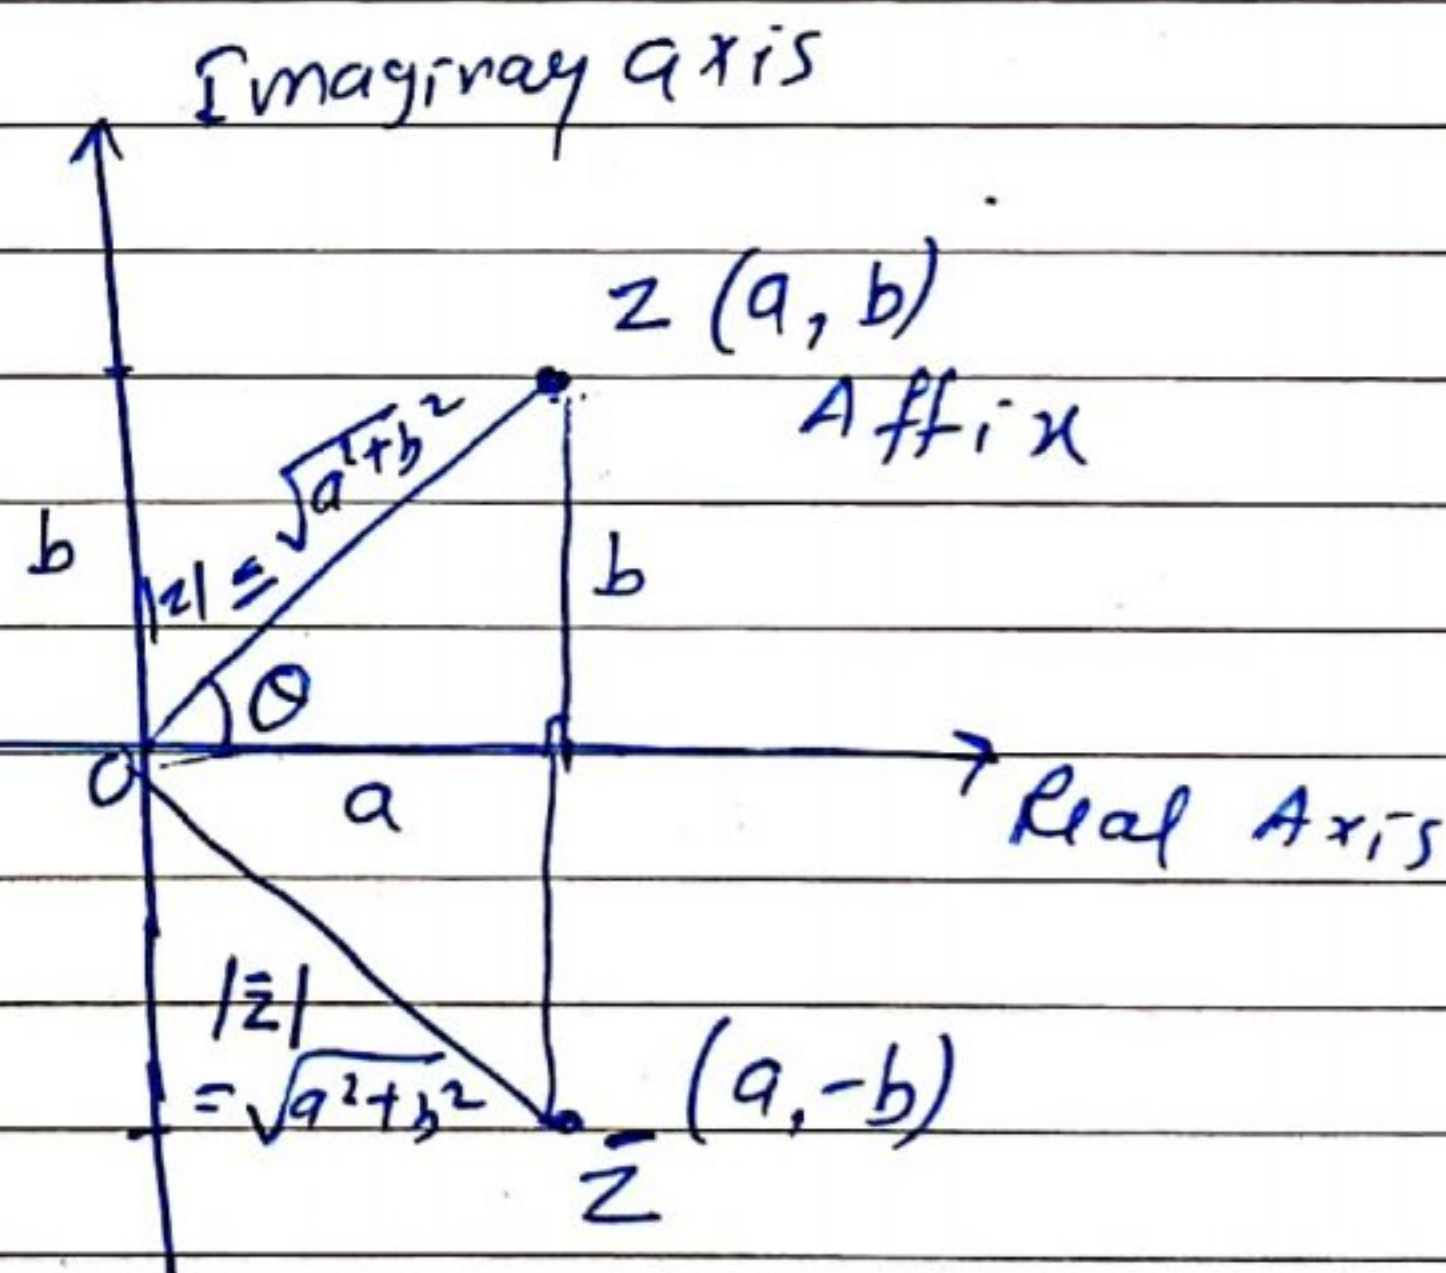 Imaginay axis
z (a, b)
Affix
|z| = √a²+b²
b
b
θ
O
a
Real Axis
|z̄|
= √a²+b²
(a,-b)
z̄